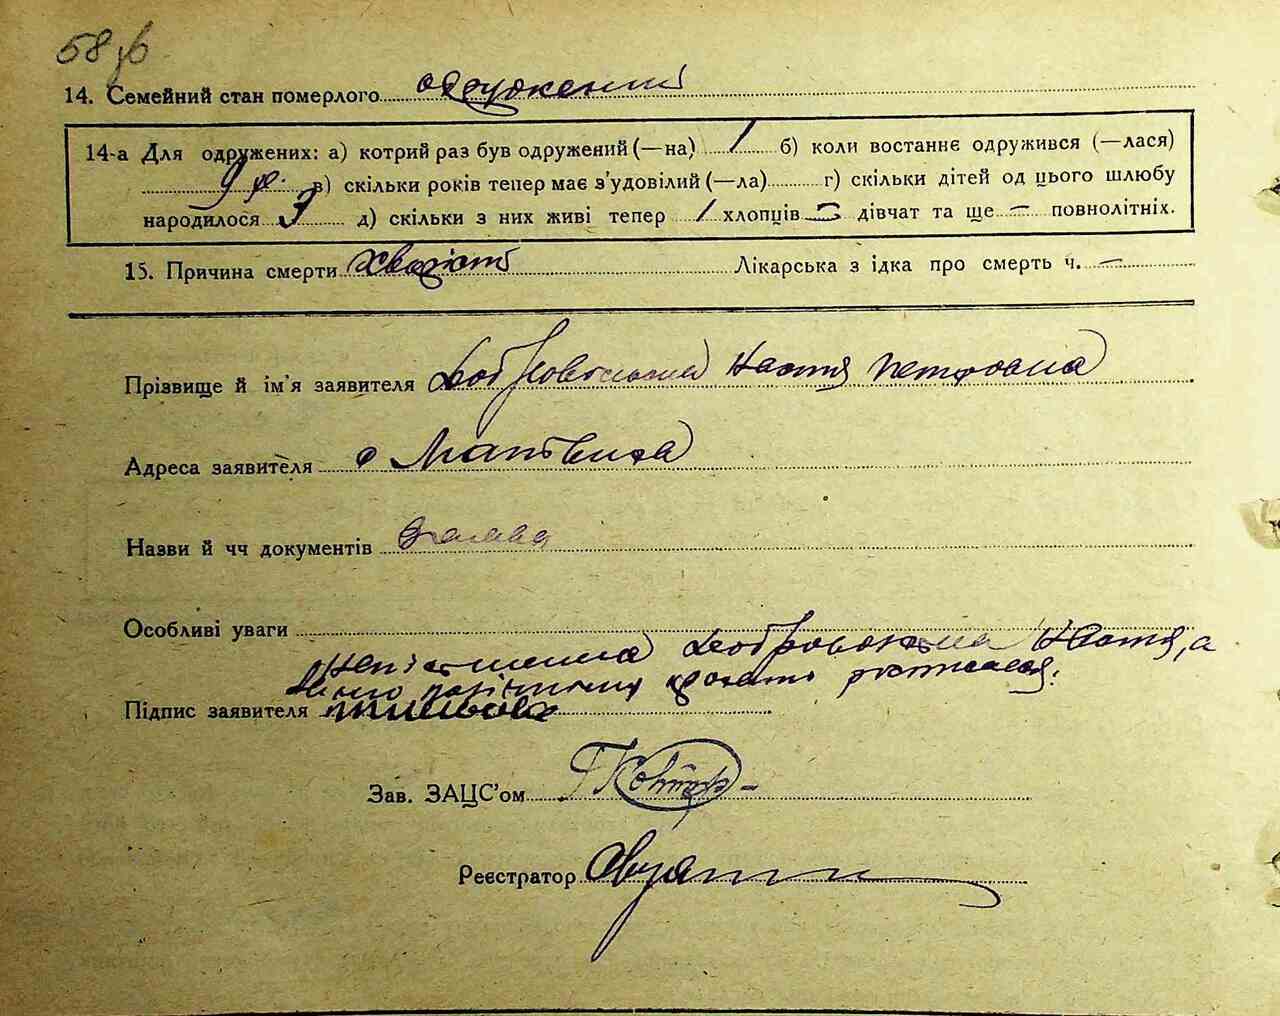 58 зв
14. Семейний стан померлого одружений
14-а Для одружених: а) котрий раз був одружений (—на) 1 б) коли востаннє одружився (—лася)
9 р. в) скільки років тепер має з'удовілий (—ла) г) скільки дітей од цього шлюбу
народилося 3 д) скільки з них живі тепер 1 хлопців 2 дівчат та ще — повнолітніх.
15. Причина смерти Лікарська з ідка про смерть ч. —
Прізвище й ім'я заявителя Добровольська Настя Петровна
Адреса заявителя с Матвиха
Назви й чч документів заява
Особливі уваги
Добровольська Настя, а
розписався.
Підпис заявителя
Зав. ЗАЦС'ом
Реєстратор